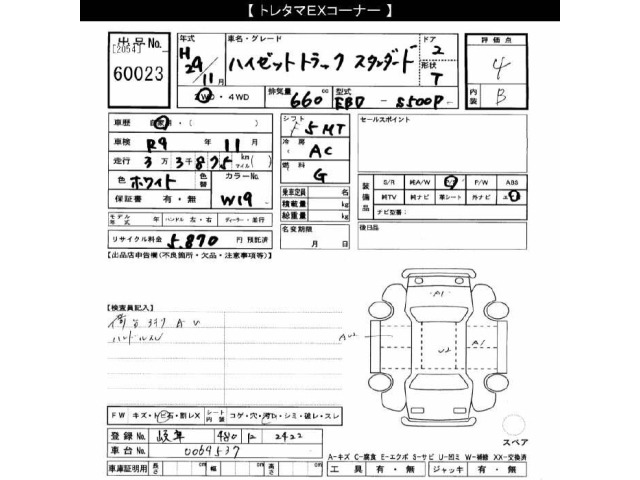 【 トレタマEXコーナー 】
出品No.
[2054]
60023
年式 H29年 11月
車名・グレード ハイゼットトラック スタンダード
ドア 2
形状 T
評価点 4
内装 B
2WD・4WD
排気量 660 cc
型式 EBD - S500P
車歴 自家用・( )
シフト 5MT
セールスポイント
車検 R9年 11月
冷房 AC
走行 3万3千875 km(マイル)( )
燃料 G
色 ホワイト 色替 カラーNo. W19
保証書 有・無
乗車定員 名
積載量 kg
総重量 kg
装備品 S/R 純A/W P/S P/W ABS
純TV 純ナビ 革シート 外ナビ エB
ナビ型番:
モデル年式 年 ハンドル 左・右 ディーラー・並行
名変期限 月 日
後日品
リサイクル料金 5,870 円 預託済
【出品店申告欄(不良箇所・欠品・注意事項等)】
【検査員記入】
ハンドルスレ
A1
U2
A1
FW キズ・トビ石・割レX シート内装 コゲ・穴・汚レ・シミ・破レ・スレ
登録No. 岐阜 480 に 2422
車台No. 0069537
スペア
A-キズ C-腐食 E-エクボ S-サビ U-凹ミ W-補修 XX-交換済
車庫証明用 長さ cm 幅 cm 高さ cm
工具 有・無 ジャッキ 有・無